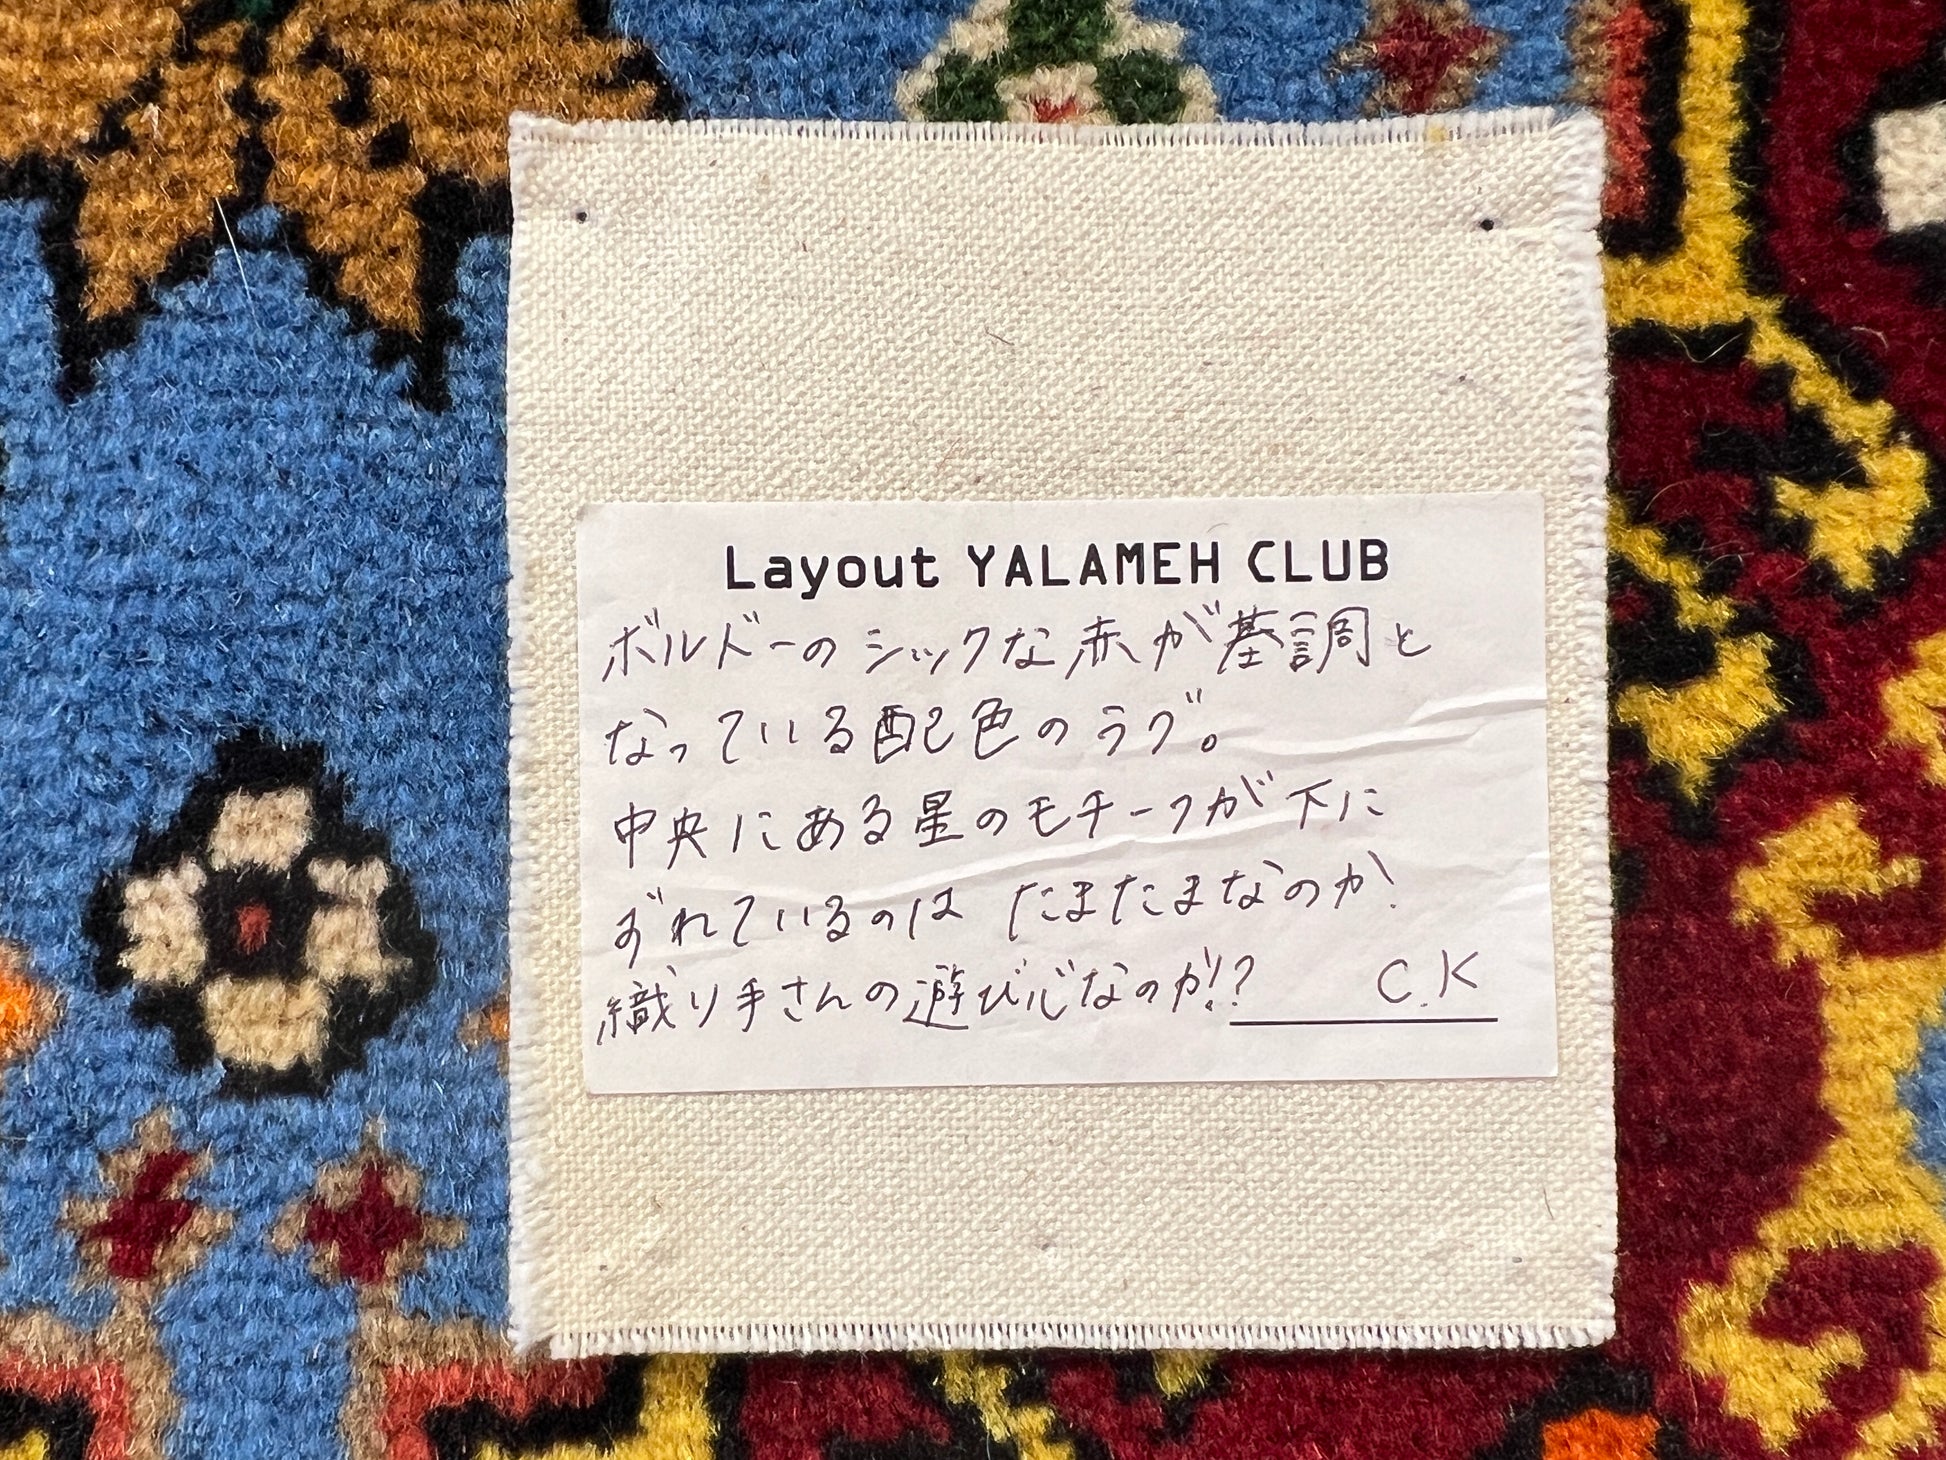 Layout YALAMEH CLUB
ボルドーのシックな赤が基調と
なっている配色のラグ。
中央にある星のモチーフが下に
ずれているのは たまたまなのか!
織り手さんの遊び心なのか!? C.K